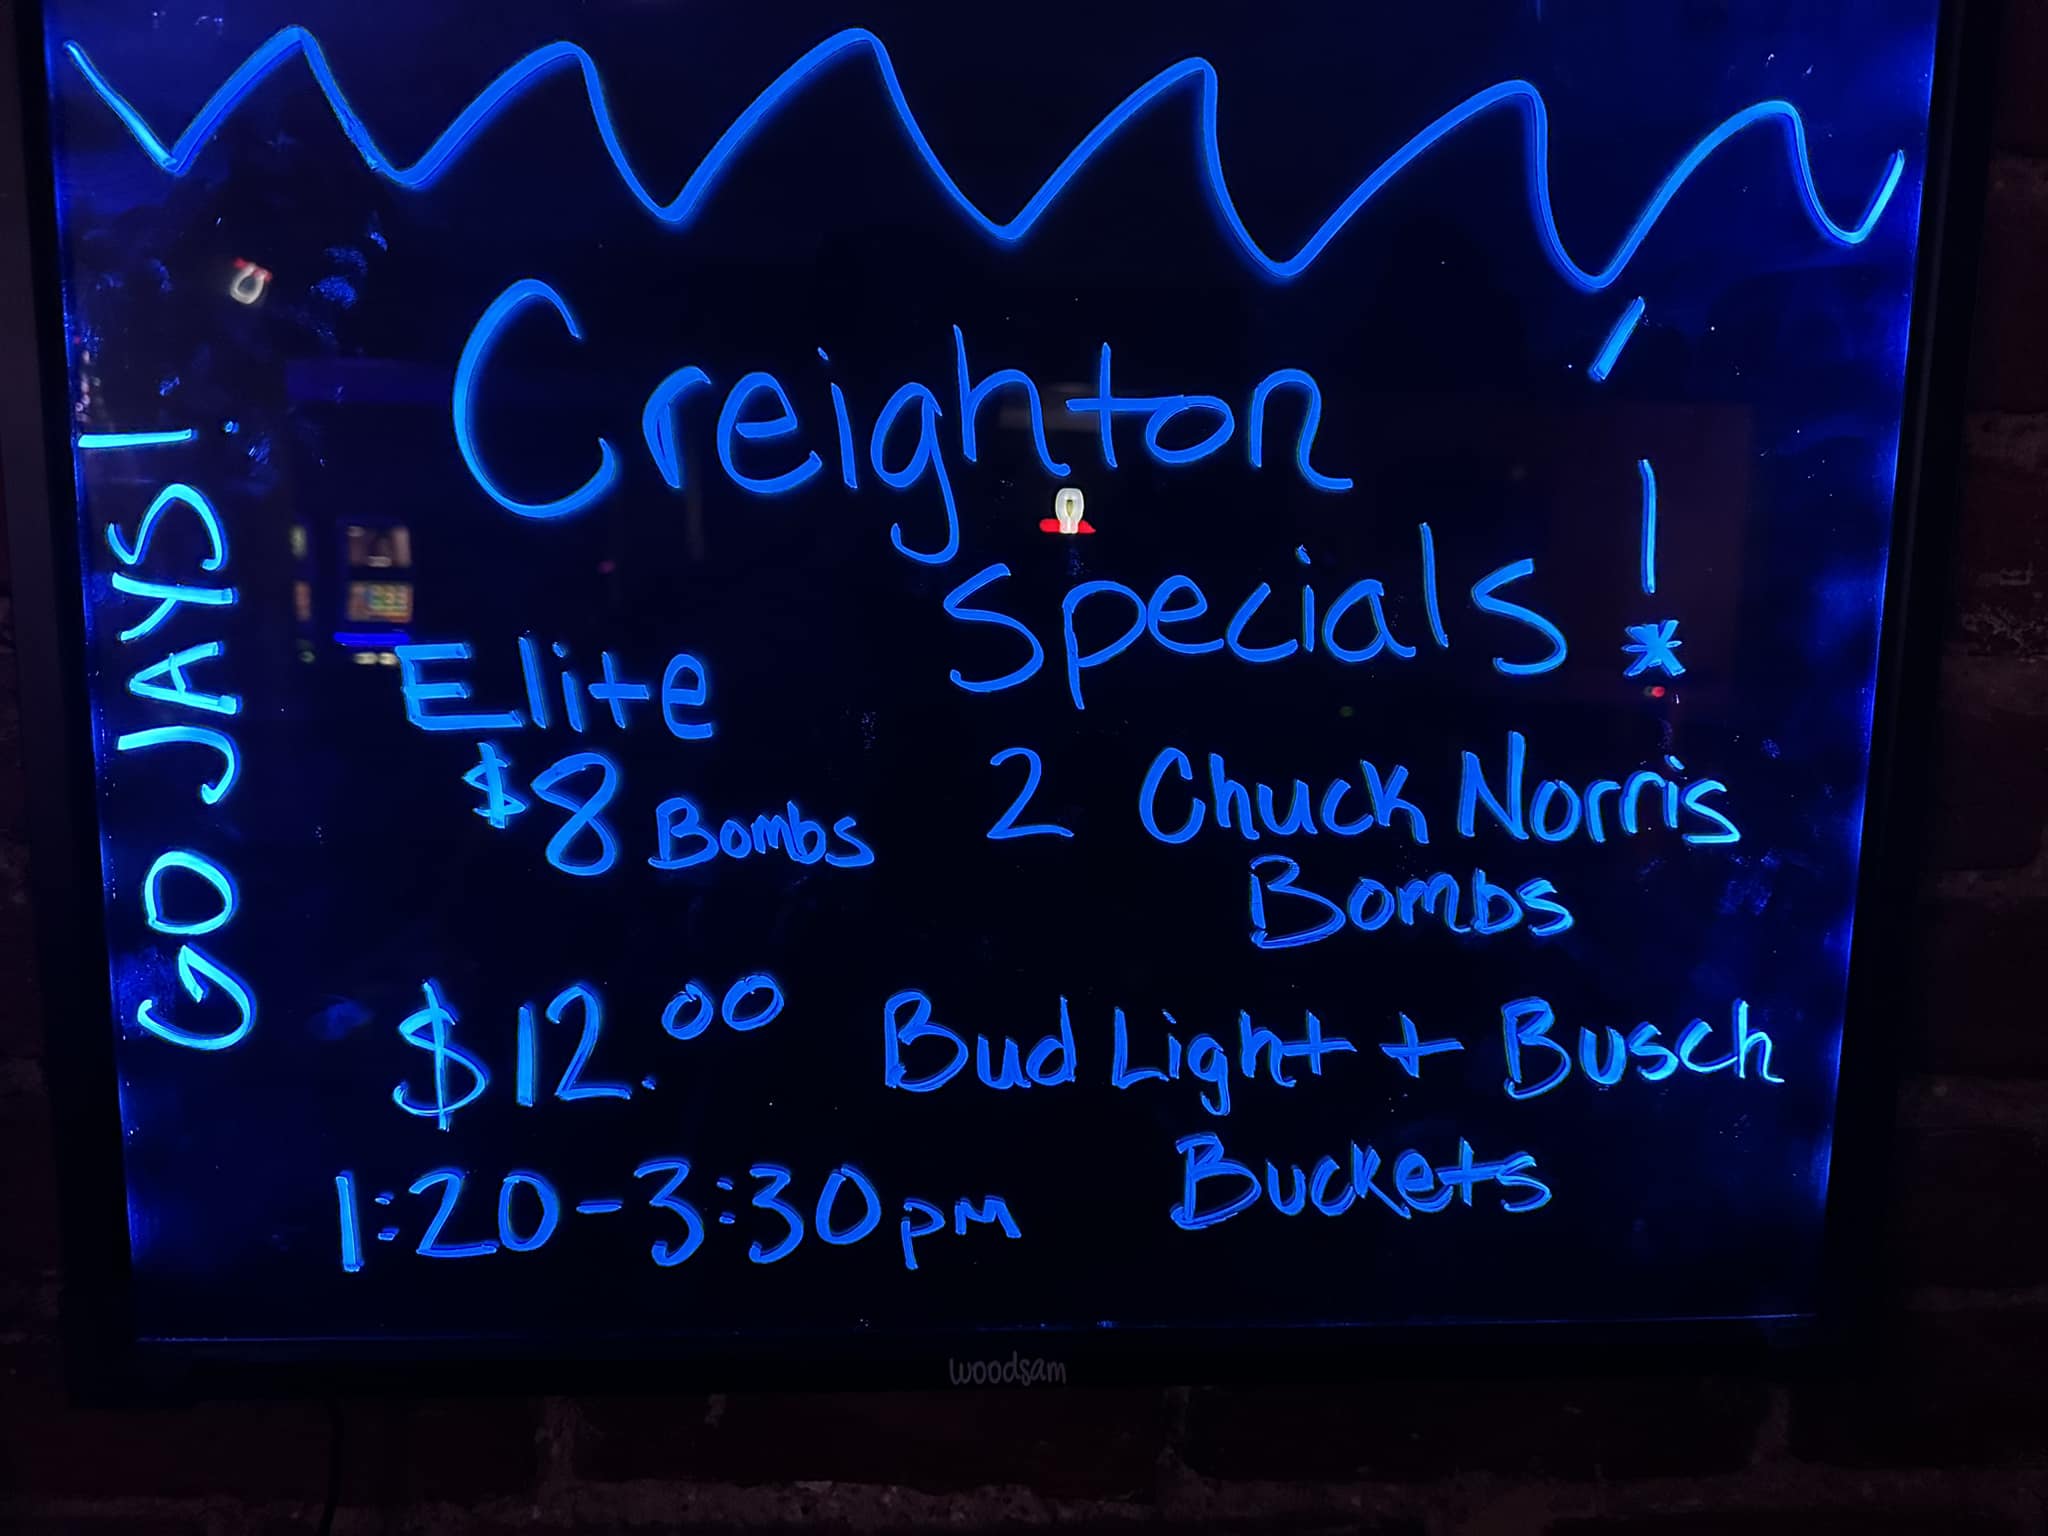 Creighton
Specials!*
GO JAYS!
Elite
$8 Bombs
2 Chuck Norris
Bombs
$12.00 Bud Light + Busch
Buckets
1:20-3:30pm
woodsam